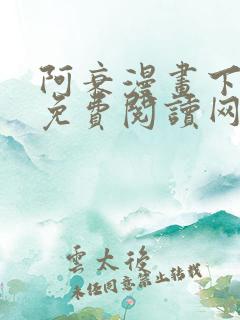 阿衰漫畫下
免費閱讀网
雲太後
未经同意禁止转载